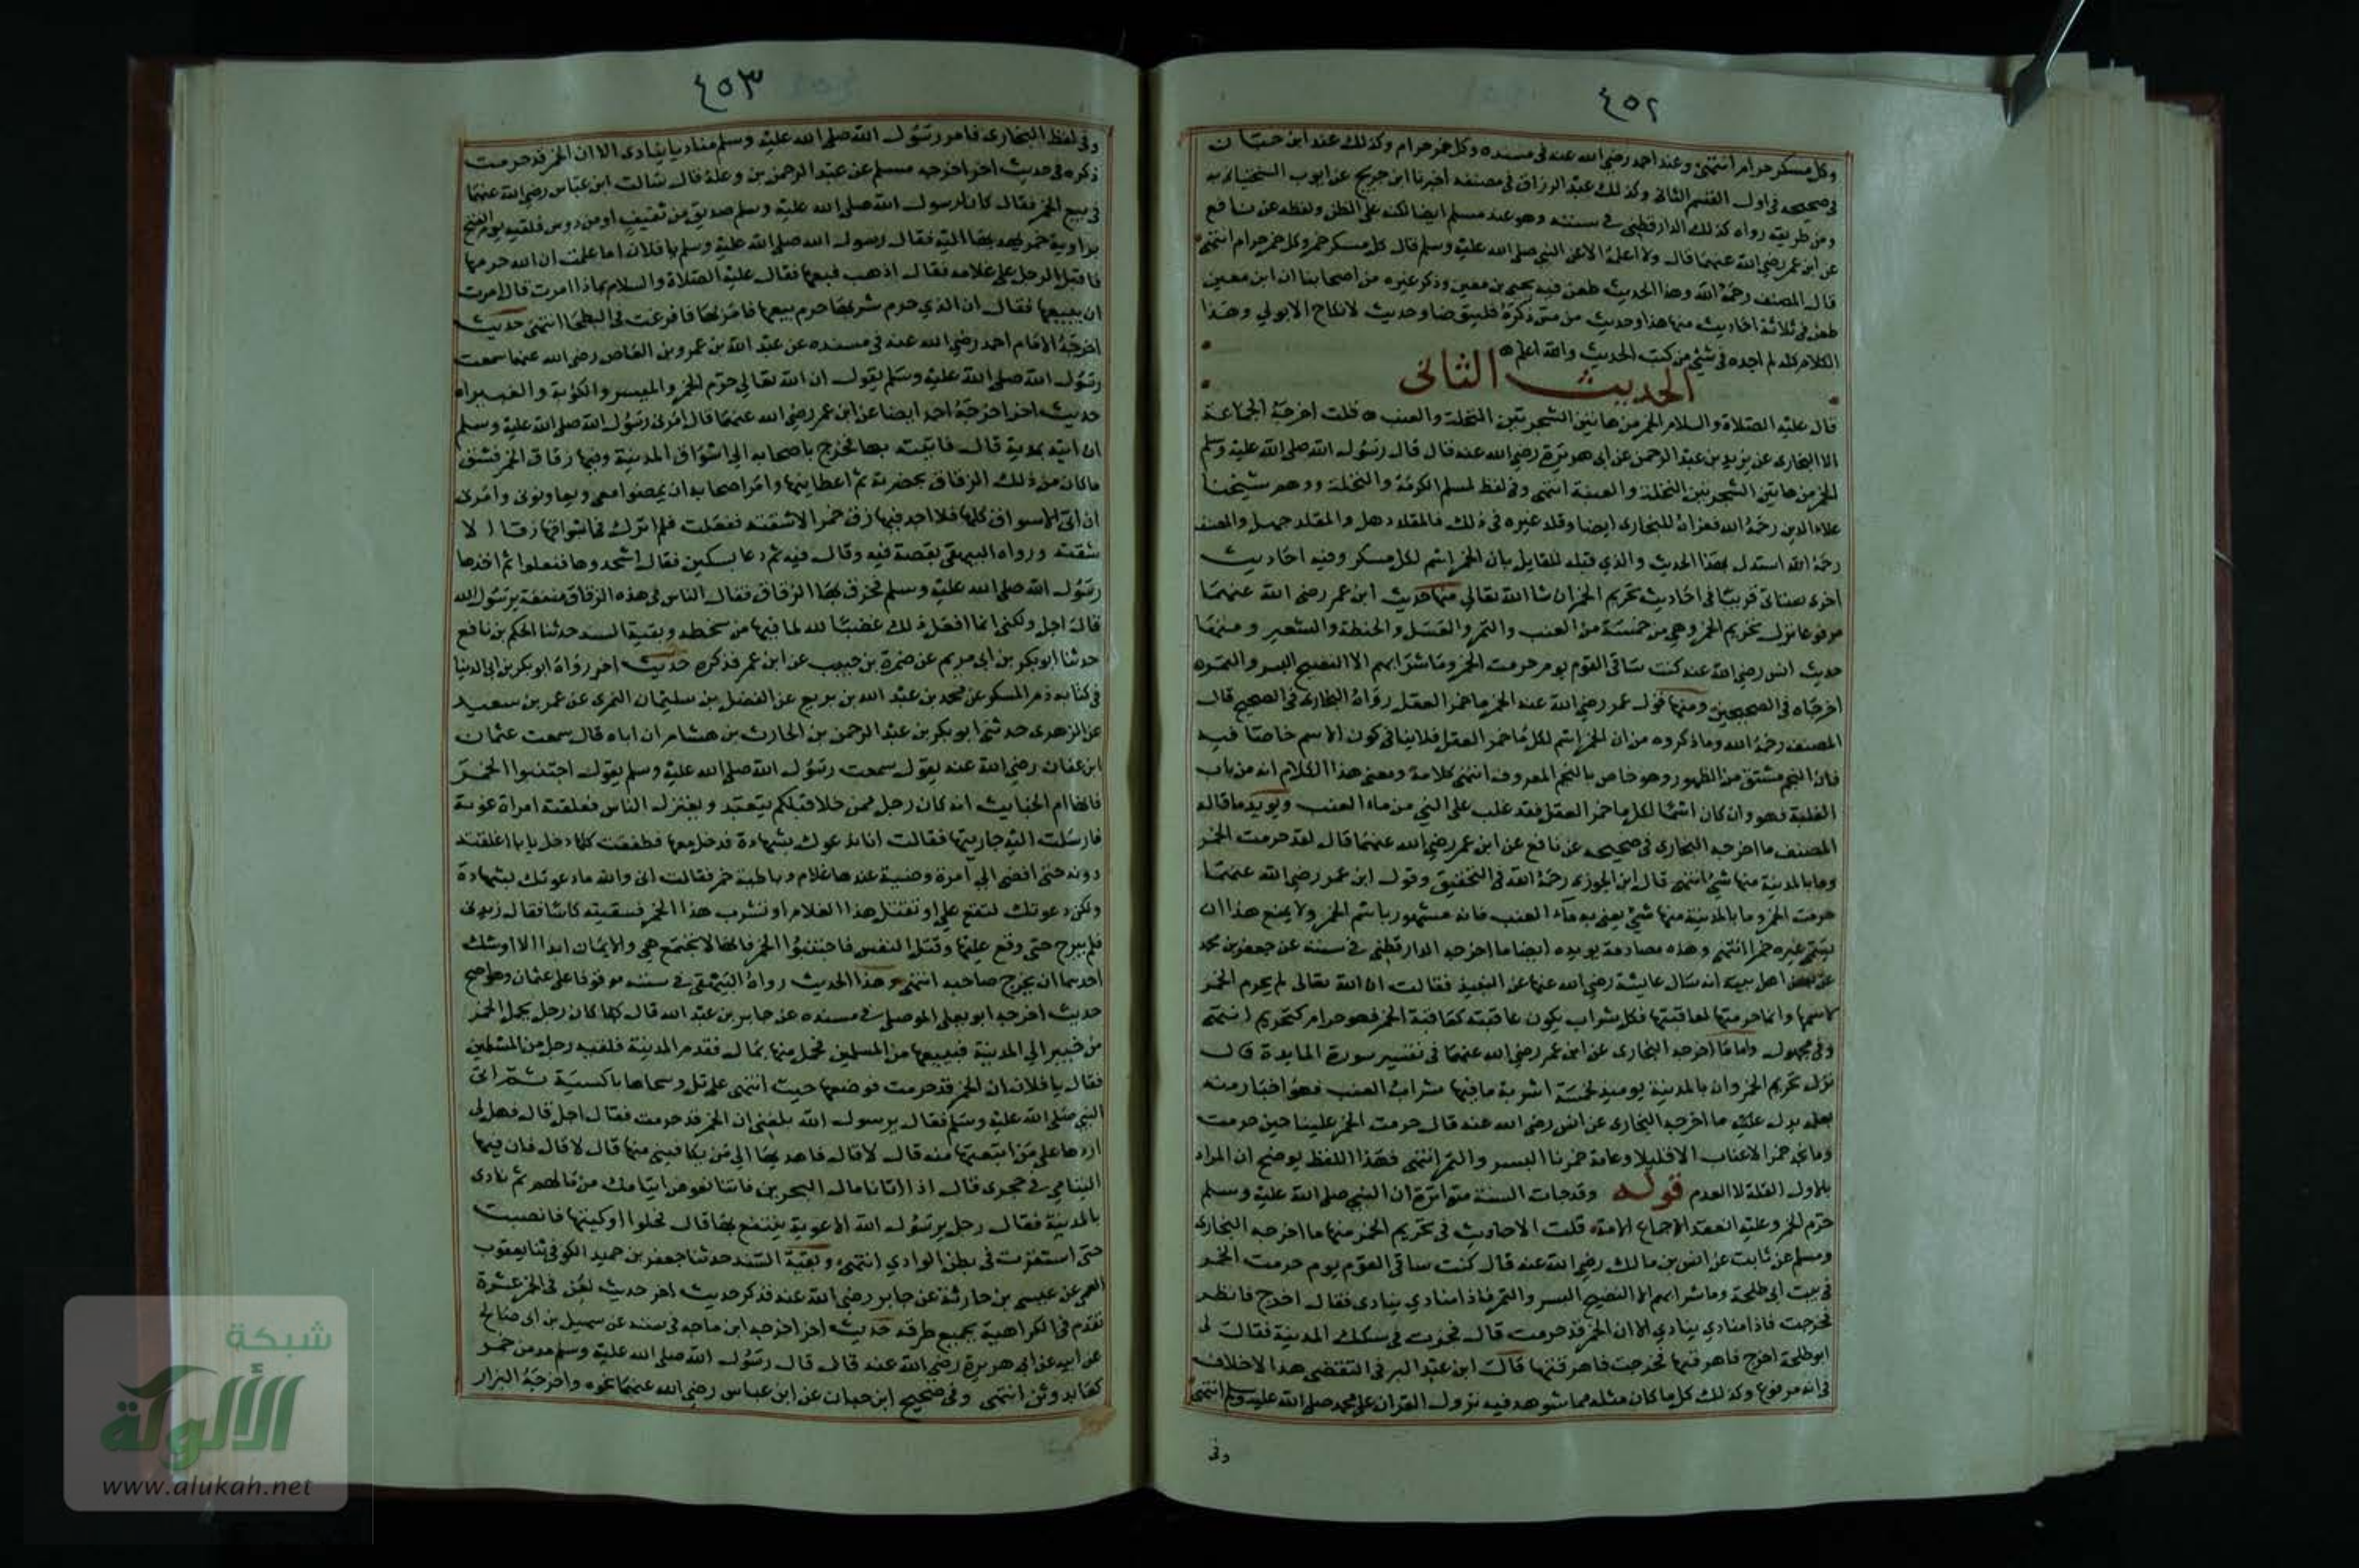 ٤٥٢
وكل مسكر حرام انتهى وعند احمد رضي الله عنه في مسنده وكل خمر حرام وكذلك عند ابن حبان
في صحيحه في اول القسم الثاني وكذلك عبد الرزاق في مصنفه اخبرنا ابن جريج عن ايوب السختياني به
ومن طريقه رواه كذلك الدارقطني في سننه وهو عند مسلم ايضا لكنه على الظن ولفظه عن نافع
عن ابن عمر رضي الله عنهما قال ولا اعلمه الا عن النبي صلى الله عليه وسلم قال كل مسكر خمر وكل خمر حرام انتهى
قال المصنف رحمه الله وهذا الحديث طعن فيه يحيى بن معين وذكر غيره من اصحابنا ان ابن معين
طعن في ثلاثة احاديث منها هذا وحديث من مس ذكره فليتوضا وحديث لا نكاح الا بولي وهذا
الكلام كله لم اجده في شئ من كتب الحديث والله اعلم
الحديث الثاني
قال عليه الصلاة والسلام الخمر من هاتين الشجرتين النخلة والعنب قلت اخرجه الجماعة
الا البخاري عن يزيد بن عبد الرحمن عن ابي هريرة رضي الله عنه قال قال رسول الله صلى الله عليه وسلم
الخمر من هاتين الشجرتين النخلة والعنبة انتهى وفي لفظ لمسلم الكرمة والنخلة ووهم شيخنا
علاء الدين رحمه الله فعزاه للبخاري ايضا وقلد غيره في ذلك فالمقلد ذهل والمقلد جهل والمصنف
رحمه الله استدل بهذا الحديث والذي قبله للقايل بان الخمر اسم لكل مسكر وفيه احاديث
اخرى ستاتي قريبا في احاديث تحريم الخمر ان شا الله تعالى منها حديث ابن عمر رضي الله عنهما
مرفوعا نزل تحريم الخمر وهي من خمسة من العنب والتمر والعسل والحنطة والشعير ومنها
حديث انس رضي الله عنه كنت ساقي القوم يوم حرمت الخمر وما شرابهم الا الفضيخ البسر والتمر
اخرجاه في الصحيحين ومنها قول عمر رضي الله عنه الخمر ما خمر العقل رواه البخاري في الصحيح قال
المصنف رحمه الله وما ذكروه من ان الخمر اسم لكل ما خمر العقل فلا ينافي كون الاسم خاصا فيه
فان النجم مشتق من الظهور وهو خاص بالنجم المعروف انتهى كلامه ومعنى هذا الكلام انه من باب
الغلبة فهو وان كان اسما لكل ما خمر العقل فقد غلب على الني من ماء العنب ويؤيد ما قاله
المصنف ما اخرجه البخاري في صحيحه عن نافع عن ابن عمر رضي الله عنهما قال لقد حرمت الخمر
وما بالمدينة منها شئ انتهى قال ابن الجوزي رحمه الله في التحقيق وقول ابن عمر رضي الله عنهما
حرمت الخمر وما بالمدينة منها شئ يعني به ماء العنب فانه مشهور باسم الخمر ولا يمنع هذا ان
يسمى غيره خمرا انتهى وهذه مصادمة يويده ايضا ما اخرجه الدارقطني في سننه عن جعفر بن محمد
عن بعض اهل بيته انه سال عايشة رضي الله عنها عن النبيذ فقالت ان الله تعالى لم يحرم الخمر
لاسمها وانما حرمتها لعاقبتها فكل شراب يكون عاقبته كعاقبة الخمر فهو حرام كتحريم انتهى
وفي مجهول واما ما اخرجه البخاري عن ابن عمر رضي الله عنهما في تفسير سورة المايدة قال
نزل تحريم الخمر وان بالمدينة يوميذ لخمسة اشربة ما فيها شراب العنب فهو اخبار منه
بعلمه يدل عليه ما اخرجه البخاري عن انس رضي الله عنه قال حرمت الخمر علينا حين حرمت
وما نجد خمر الاعناب الا قليلا وعامة خمرنا البسر والتمر انتهى فهذا اللفظ يوضح ان المراد
بالاول القلة لا العدم قوله وقد جات السنة متواترة ان النبي صلى الله عليه وسلم
حرم الخمر وعليه انعقد الاجماع الامة قلت الاحاديث في تحريم الخمر منها ما اخرجه البخاري
ومسلم عن ثابت عن انس بن مالك رضي الله عنه قال كنت ساقي القوم يوم حرمت الخمر
في بيت ابي طلحة وما شرابهم الا الفضيخ البسر والتمر فاذا منادي ينادي فقال اخرج فانظر
فخرجت فاذا منادي ينادي الا ان الخمر قد حرمت قال فجرت في سكك المدينة فقال لي
ابو طلحة اخرج فاهرقها فخرجت فاهرقتها قال ابن عبد البر في التقصي هذا لا خلاف
في انه مرفوع وكذلك كل ما كان مثله مما شوهد فيه نزول القران على محمد صلى الله عليه وسلم انتهى
وفي
٤٥٣
وفي لفظ البخاري فامر رسول الله صلى الله عليه وسلم مناديا ينادي الا ان الخمر قد حرمت
ذكره في حديث اخر اخرجه مسلم عن عبد الرحمن بن وعلة قال سالت ابن عباس رضي الله عنهما
في بيع الخمر فقال كان لرسول الله صلى الله عليه وسلم صديق من ثقيف او من دوس فلقيه يوم الفتح
براوية خمر يهديها اليه فقال رسول الله صلى الله عليه وسلم يا فلان اما علمت ان الله حرمها
فاقبل الرجل على غلامه فقال اذهب فبعها فقال عليه الصلاة والسلام بماذا امرت قال امرت
ان يبيعها فقال ان الذي حرم شربها حرم بيعها فامر بها فافرغت في البطحا انتهى حديث
اخرجه الامام احمد رضي الله عنه في مسنده عن عبد الله بن عمرو بن العاص رضي الله عنهما سمعت
رسول الله صلى الله عليه وسلم يقول ان الله تعالى حرم الخمر والميسر والكوبة والغبيراء
حديث اخر اخرجه احمد ايضا عن ابن عمر رضي الله عنهما قال امرني رسول الله صلى الله عليه وسلم
ان اتيه بمدية قال فاتيته بها فخرج باصحابه الى اسواق المدينة وفيها زقاق الخمر فشق
ما كان من ذلك الزقاق بحضرته ثم اعطانيها وامر اصحابه ان يمضوا معي ويعاونوني وامرني
ان اتي الاسواق كلها فلا اجد فيها زق خمر الا شققته ففعلت فلم اترك في اسواقها زقا الا
شققته ورواه البيهقي بقصة فيه وقال فيه ثم دعا بسكين فقال اشحذوها ففعلوا ثم اخذها
رسول الله صلى الله عليه وسلم فخرق بها الزقاق فقال الناس في هذه الزقاق منفعة يرسول الله
قال اجل ولكني انما افعل ذلك غضبا لله لما فيها من سخطه وبقية السند حدثنا الحكم بن نافع
حدثنا ابو بكر بن ابي مريم عن ضمرة بن حبيب عن ابن عمر فذكره حديث اخر رواه ابو بكر بن ابي الدنيا
في كتابه ذم المسكر عن محمد بن عبد الله بن بزيع عن الفضل بن سليمان النمري عن عمر بن سعيد
عن الزهري حدثني ابو بكر بن عبد الرحمن بن الحارث بن هشام ان اباه قال سمعت عثمان
ابن عفان رضي الله عنه يقول سمعت رسول الله صلى الله عليه وسلم يقول اجتنبوا الخمر
فانها ام الخبايث انه كان رجل فمن خلا قبلكم يتعبد ويعتزل الناس فعلقته امراة غوية
فارسلت اليه جاريتها فقالت انا ندعوك بشهادة فدخل معها فطفقت كلما دخل بابا اغلقته
دونه حتى افضى الى امرة وضيية عندها غلام وباطية خمر فقالت اني والله ما دعوتك لشهادة
ولكن دعوتك لتقع علي او تقتل هذا الغلام او تشرب هذا الخمر فسقيته كاسا فقال زيدوني
فلم يبرح حتى وقع عليها وقتل النفس فاجتنبوا الخمر فانها لا تجتمع هي والايمان ابدا الا اوشك
احدهما ان يخرج صاحبه انتهى وهذا الحديث رواه البيهقي في سننه موقوفا على عثمان وهو اصح
حديث اخرجه ابو يعلى الموصلي في مسنده عن جابر بن عبد الله قال كان رجل يحمل الخمر
من خيبر الى المدينة فيبيعها من المسلمين فحمل منها بمال فقدم المدينة فلقيه رجل من المسلمين
فقال يا فلان ان الخمر قد حرمت فوضعها حيث انتهى على تل وسجاها باكسية ثم اتى
النبي صلى الله عليه وسلم فقال يرسول الله بلغني ان الخمر قد حرمت فقال اجل قال فهل لي
اردها على من ابتعتها منه قال لا قال فاهديها الى من يكافيني منها قال لا قال فان فيها
اليتامى في حجري قال اذا اتانا مال البحرين فاتنا نعوض ايتامك من مالهم ثم نادى
بالمدينة فقال رجل يرسول الله الاوعية ينتفع بها قال فحلوا اوكيتها فانصبت
حتى استقرت في بطن الوادي انتهى وبقية السند حدثنا جعفر بن حميد الكوفي ثنا يعقوب
العمي عن عيسى بن حارثة عن جابر رضي الله عنه فذكر حديث اخر حديث لعن في الخمر عشرة
تقدم في الكراهية بجميع طرقه حديث اخر اخرجه ابن ماجه في سننه عن سهيل بن ابي صالح
عن ابيه عن ابي هريرة رضي الله عنه قال قال رسول الله صلى الله عليه وسلم مدمن خمر
كعابد وثن انتهى وفي صحيح ابن حبان عن ابن عباس رضي الله عنهما نحوه واخرجه البزار
شبكة
الألوكة
www.alukah.net